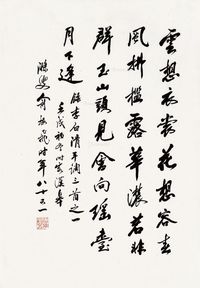 雲想衣裳花想容春
風拂檻露華濃若非
群玉山頭見會向瑤臺
月下逢
錄李白清平調三首之一
壬戌初冬時客漢皋
時年八十又一